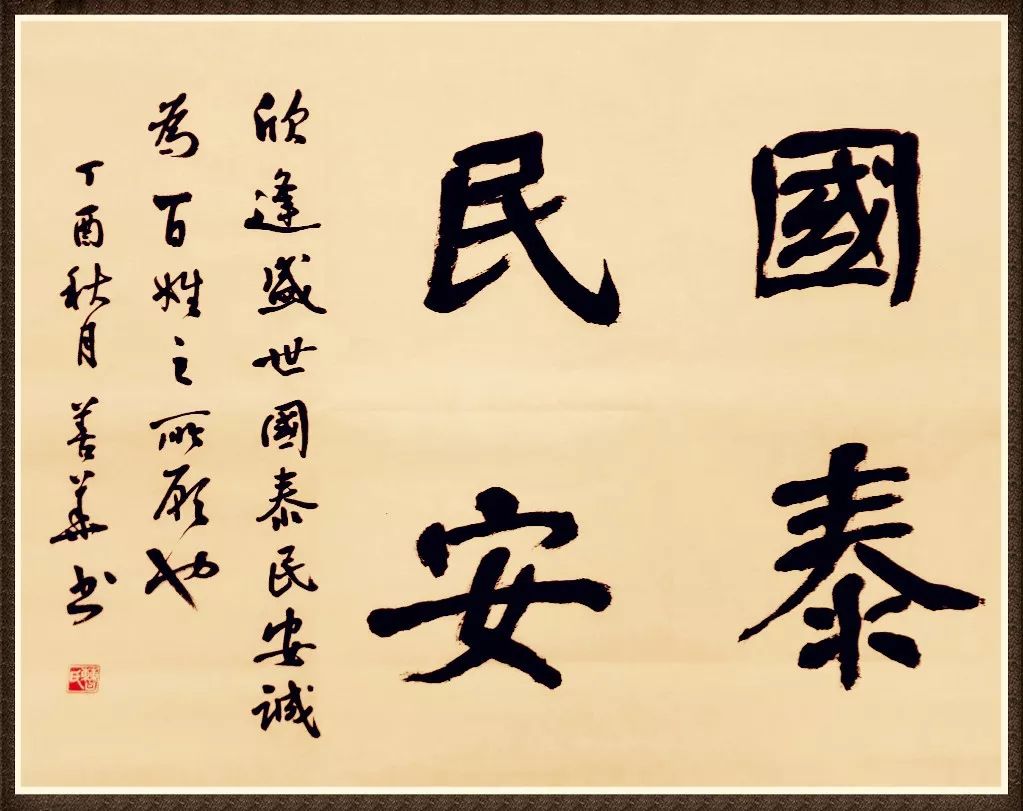 國泰
民安
欣逢盛世國泰民安誠
為百姓之所願也
丁酉秋月善華书